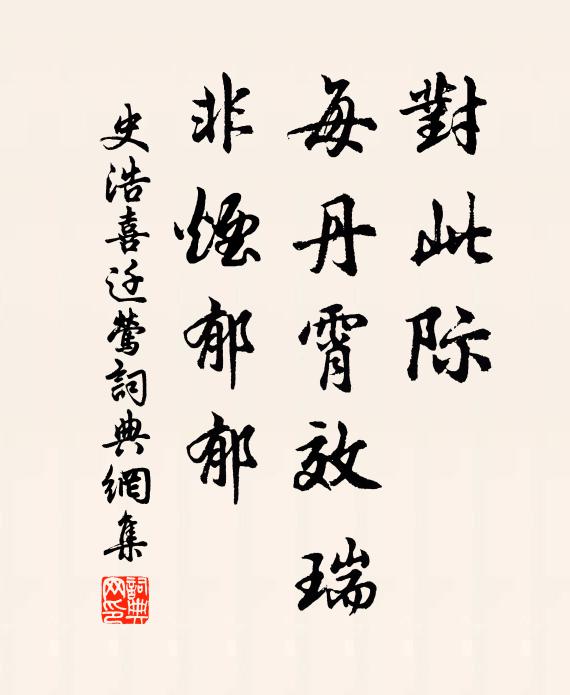 對此際
每丹霄效瑞
非煙郁郁
史浩喜迁鶯詞典網集
詞典网印